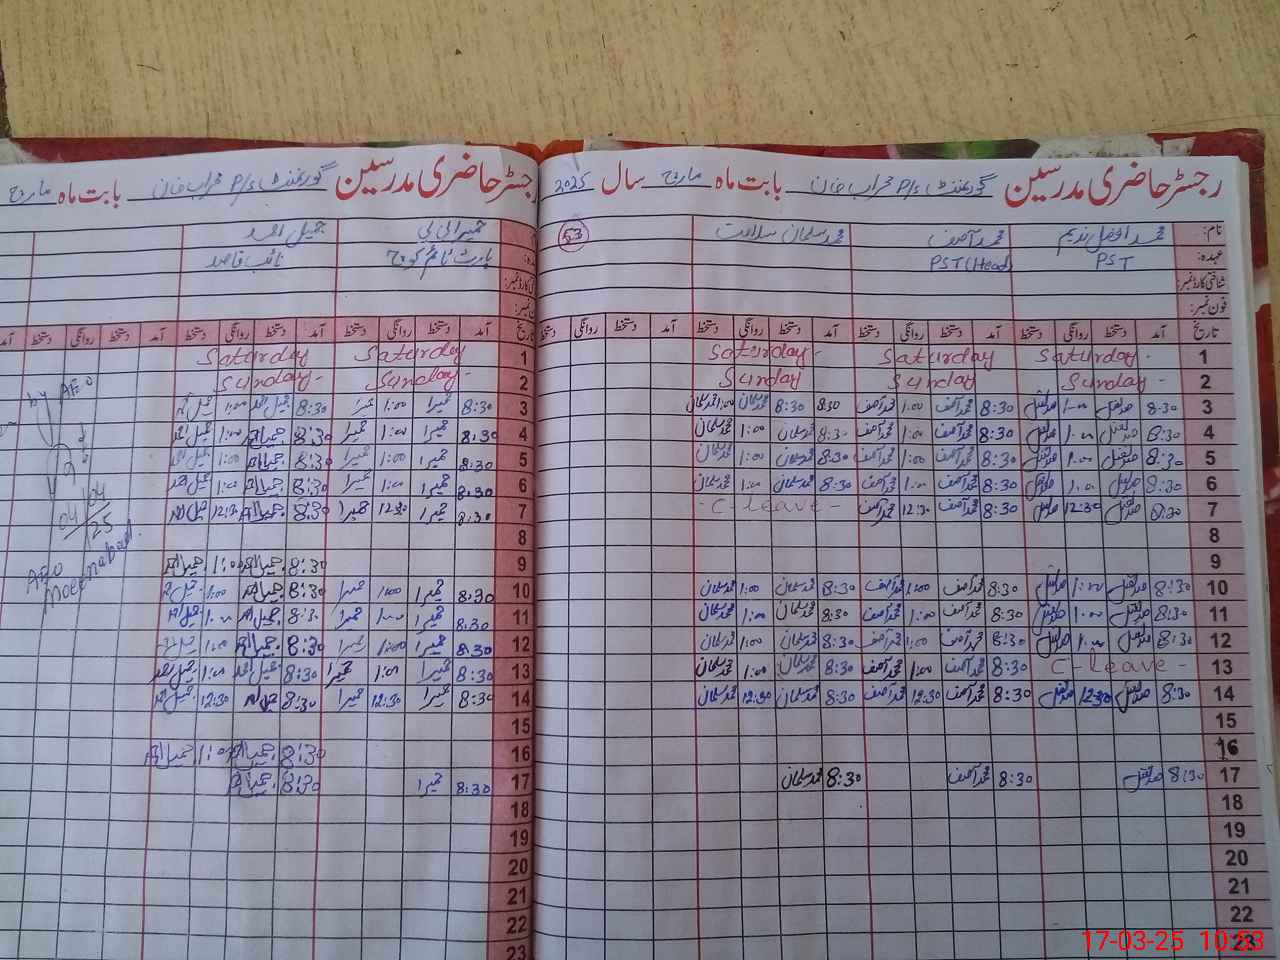 رجسٹر حاضری مدرسین گورنمنٹ P/S محراب خان بابت ماہ مارچ سال 2025
نام: محمد افضل ندیم محمد آصف محمد سلمان سلامت 53
عہدہ: PST PST (Head)
شناختی کارڈ نمبر:
فون نمبر:
تاریخ آمد دستخط روانگی دستخط آمد دستخط روانگی دستخط آمد دستخط روانگی دستخط آمد دستخط روانگی دستخط
1 Saturday - Saturday Saturday -
2 Sunday - Sunday Sunday
3 8:30 1:00 8:30 محمد آصف 1:00 محمد آصف 8:30 8:30 محمد سلمان 1:00 محمد سلمان
4 8:30 1:00 8:30 محمد آصف 1:00 محمد آصف 8:30 محمد سلمان 1:00 محمد سلمان
5 8:30 1:00 8:30 محمد آصف 1:00 محمد آصف 8:30 محمد سلمان 1:00 محمد سلمان
6 8:30 1:00 8:30 محمد آصف 1:00 محمد آصف 8:30 محمد سلمان 1:00 محمد سلمان
7 8:30 12:30 8:30 محمد آصف 12:30 محمد آصف - C-leave -
8
9
10 8:30 1:00 8:30 محمد آصف 1:00 محمد آصف 8:30 محمد سلمان 1:00 محمد سلمان
11 8:30 1:00 8:30 محمد آصف 1:00 محمد آصف 8:30 محمد سلمان 1:00 محمد سلمان
12 8:30 1:00 8:30 محمد آصف 1:00 محمد آصف 8:30 محمد سلمان 1:00 محمد سلمان
13 C-leave - 8:30 محمد آصف 1:00 محمد آصف 8:30 محمد سلمان 1:00 محمد سلمان
14 8:30 12:30 8:30 محمد آصف 12:30 محمد آصف 8:30 محمد سلمان 12:30 محمد سلمان
15
16
17 8:30 8:30 محمد آصف 8:30 محمد سلمان
18
19
20
21
22
23
رجسٹر حاضری مدرسین گورنمنٹ P/S محراب خان بابت ماہ مارچ
حمیرا بی بی جمیل احمد
پارٹ ٹائم کوچ نائب قاصد
تاریخ آمد دستخط روانگی دستخط آمد دستخط روانگی دستخط آمد دستخط روانگی دستخط آمد
1 Saturday Saturday
2 Sunday - Sunday -
3 8:30 حمیرا 1:00 حمیرا 8:30 جمیل احمد 1:00 جمیل احمد
4 8:30 حمیرا 1:00 حمیرا 8:30 جمیل احمد 1:00 جمیل احمد
5 8:30 حمیرا 1:00 حمیرا 8:30 جمیل احمد 1:00 جمیل احمد
6 8:30 حمیرا 1:00 حمیرا 8:30 جمیل احمد 1:00 جمیل احمد
7 8:30 حمیرا 12:30 حمیرا 8:30 جمیل احمد 12:30 جمیل احمد
8
9 8:30 جمیل احمد 1:00 جمیل احمد
10 8:30 حمیرا 1:00 حمیرا 8:30 جمیل احمد 1:00 جمیل احمد
11 8:30 حمیرا 1:00 حمیرا 8:30 جمیل احمد 1:00 جمیل احمد
12 8:30 حمیرا 1:00 حمیرا 8:30 جمیل احمد 1:00 جمیل احمد
13 8:30 حمیرا 1:00 حمیرا 8:30 جمیل احمد 1:00 جمیل احمد
14 8:30 حمیرا 12:30 حمیرا 8:30 جمیل احمد 12:30 جمیل احمد
15
16 8:30 جمیل احمد 1:00 جمیل احمد
17 8:30 حمیرا 8:30 جمیل احمد
18
19
20
21
22
23
by AEO
04/04/25
AEO
Moeenabad.
17-03-25 10:53